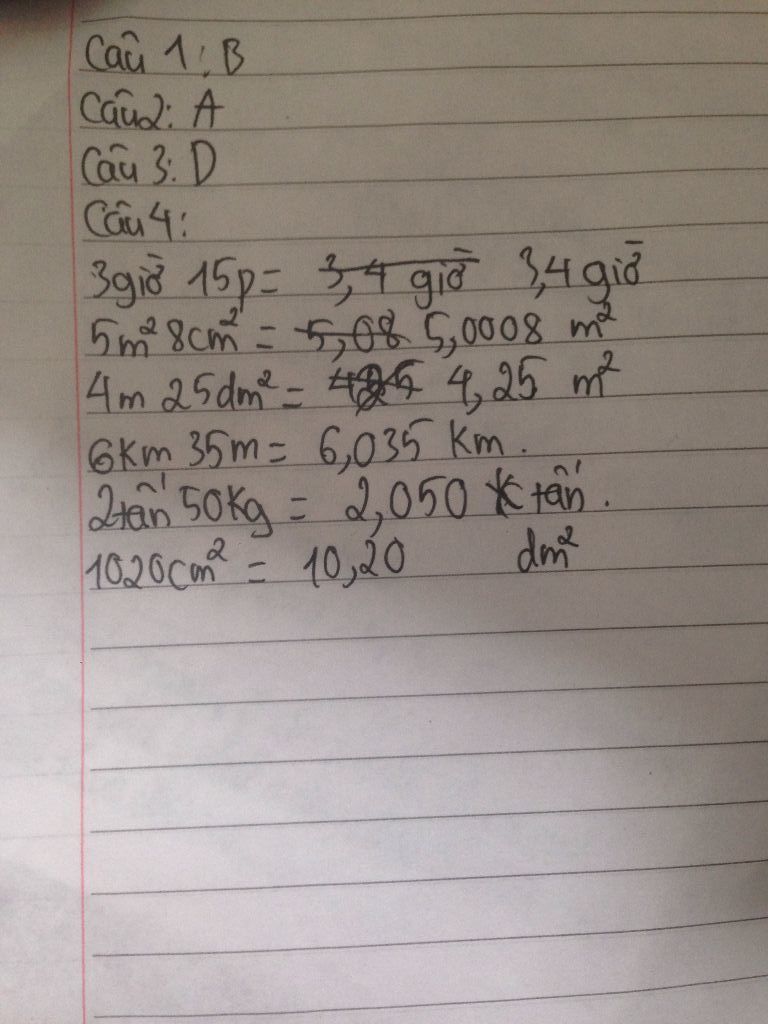 Câu 1: B
Câu 2: A
Câu 3: D
Câu 4:
3giờ 15p = 3,4 giờ 3,4 giờ
5m² 8cm² = 5,08 5,0008 m²
4m 25dm² = 425 4,25 m²
6Km 35m = 6,035 Km.
2tấn 50Kg = 2,050 K tấn.
1020cm² = 10,20 dm²